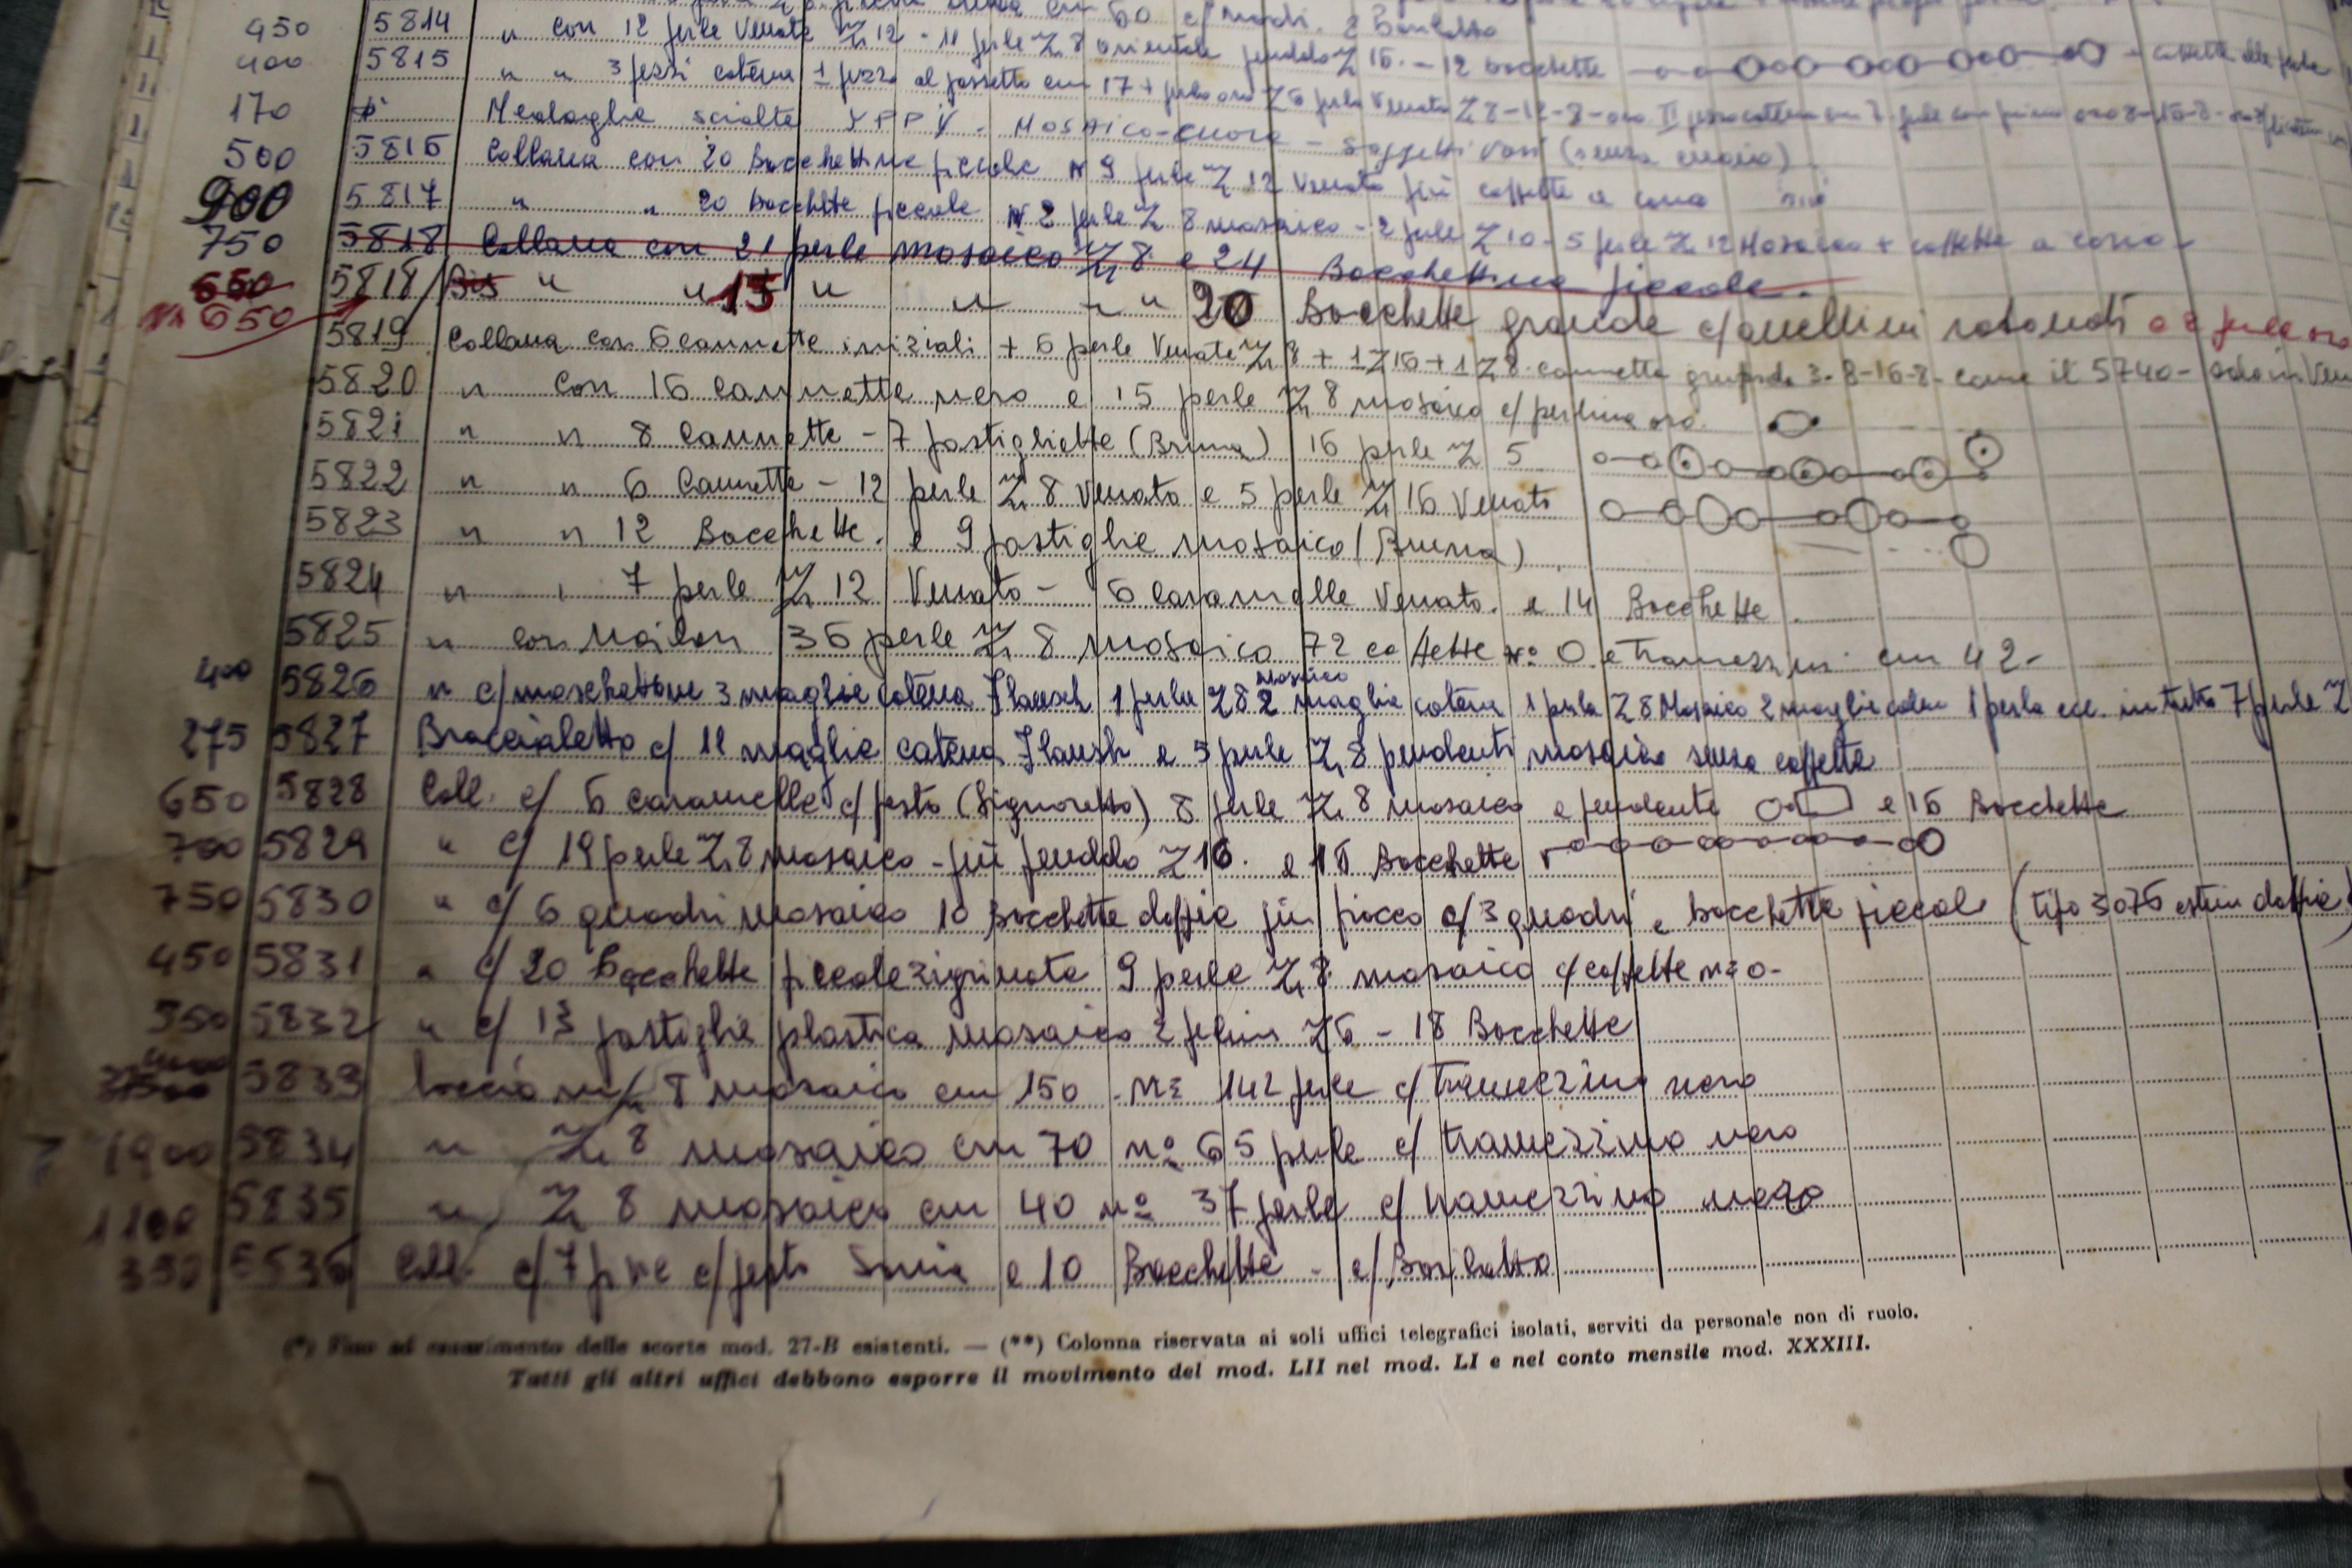 450 5814 " con 12 perle Venate Z 12 - 11 perle Z 8 orientale pendolo Z 16. - 12 bocchette
400 5815 " " 3 pezzi catena 1 pezzo al fossetto cm 17 + perla oro Z 6 perla Venato Z 8-12-8-oro II pezzo catena cm
170 Medaglie sciolte - MOSAICO-cuore - soggetti vari (senza cuoio)
500 5816 Collana con 20 Bocchettine piccole N 9 perle Z 12 Venato più coppette a cono
900 5817 " " 20 Bocchette piccole N 2 perle Z 8 mosaico - 2 perle Z 10 - 5 perle Z 12 Mosaico + coppette a cono -
750 5818 Collana con 21 perle mosaico Z 8 e 24 Bocchettine piccole.
650 5818/Bis " " 15 " " " " 20 Bocchette grande c/anellini rotondi
N. 650
5819 Collana con 6 cannette iniziali + 6 perle Venate Z 8 + 1 Z 16 + 1 Z 8 cannetta 3-8-16-8- come il 5740-
5820 " con 16 cannette nero e 15 perle Z 8 mosaico c/perlina oro.
5821 " " 8 Cannette - 7 pastigliette (Bruna) 16 perle Z 5
5822 " " 6 Cannette - 12 perle Z 8 Venato e 5 perle Z 16 Venato
5823 " " 12 Bocchette. e 9 pastiglie mosaico (Bruna)
5824 " " 7 perle Z 12 Venato - 6 caramelle Venato. e 14 Bocchette.
5825 " con Nailon 36 perle Z 8 mosaico 72 coppette N° 0 e Tramezzini cm 42-
400 5826 " c/moschettone 3 maglie catena Flausch 1 perla Z 8 mosaico 2 maglie catena 1 perla Z 8 Mosaico 2 maglie caten 1 perla ecc. in tutto 7 perle Z
275 5827 Braccialetto c/ 11 maglie catena Flausch e 5 perle Z 8 pendenti mosaico senza coppette
650 5828 Coll. c/ 6 caramelle c/pasta (Signoretto) 8 perle Z 8 mosaico e pendente e 16 Bocchette
700 5829 " c/ 19 perle Z 8 mosaico - più pendolo Z 16. e 16 Bocchette
750 5830 " c/ 6 quadri mosaico 10 Bocchette doppie più fiocco c/ 3 quadri e bocchette piccole (tipo 3076 doppie)
450 5831 " c/ 20 Bocchette piccole zigrinate 9 perle Z 8 mosaico c/coppette n° 0-
350 5832 " c/ 13 pastiglie plastica mosaico 2 Z 6 - 18 Bocchette
5833 Laccio m/m 8 mosaico cm 150 N° 142 perle c/ tramezzino nero
1900 5834 " Z 8 mosaico cm 70 n° 65 perle c/ tramezzino nero
1100 5835 " Z 8 mosaico cm 40 n° 37 perle c/ tramezzino nero
350 5836 Coll. c/ 7 c/ Sonia e 10 Bocchette - c/ Barilotto
(*) Fino ad esaurimento delle scorte mod. 27-B esistenti. — (**) Colonna riservata ai soli uffici telegrafici isolati, serviti da personale non di ruolo.
Tutti gli altri uffici debbono esporre il movimento del mod. LII nel mod. LI e nel conto mensile mod. XXXIII.